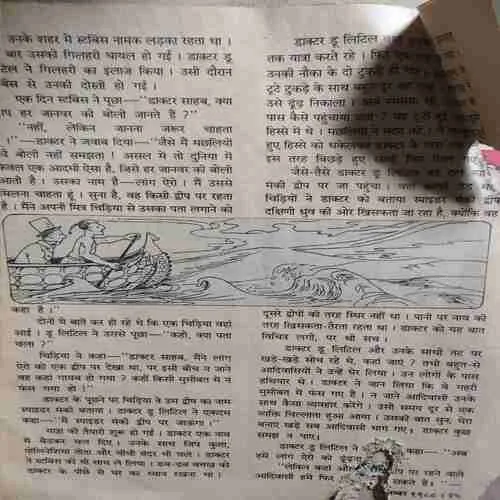 उनके शहर में स्टबिंस नामक लड़का रहता था ।
बार उसकी गिलहरी घायल हो गई । डाक्टर डू
टिल ने गिलहरी का इलाज किया । उसी दौरान
बिंस से उनकी दोस्ती हो गई ।
एक दिन स्टबिंस ने पूछा—"डाक्टर साहब, क्या
प हर जानवर की बोली जानते हैं ?"
"नहीं, लेकिन जानना जरूर चाहता
!"—डाक्टर ने जवाब दिया—"जैसे मैं मछलियों
बोली नहीं समझता ! असल में तो दुनिया में
केवल एक आदमी ऐसा है, जिसे हर जानवर की बोली
आती है । उसका नाम है—लांग ऐरो । मैं उससे
मिलना चाहता हूं । सुना है, वह किसी द्वीप पर रहता
है । मैंने अपनी मित्र चिड़िया से उसका पता लगाने को
कहा है ।"
दोनों ये बातें कर ही रहे थे कि एक चिड़िया वहां
आई । डू लिटिल ने उससे पूछा—"कहो, क्या पता
चला ?"
चिड़िया ने कहा—"डाक्टर साहब, मैंने लांग
ऐरो को एक द्वीप पर देखा था, पर इसी बीच न जाने
वह कहां गायब हो गया ? कहीं किसी मुसीबत में न
फंस गया हो ।"
डाक्टर के पूछने पर चिड़िया ने उस द्वीप का नाम
स्पाइडर मंकी बताया । डाक्टर डू लिटिल ने एकदम
कहा—"मैं स्पाइडर मंकी द्वीप पर जाऊंगा ।"
यात्रा की तैयारी शुरू हो गई । डाक्टर एक नाव
में बैठकर चल दिए । उनके साथ जिप कुत्ता,
पोलिनेशिया तोता और चीची बंदर भी चले । डाक्टर
ने स्टबिंस को भी साथ ले लिया ।
डाक्टर के पीछे से घर का ध्यान रखना था ।
डाक्टर डू लिटिल
तक यात्रा करते रहे ।
उनकी नौका के दो टुकड़े हो
टूटे टुकड़े के साथ बहुत दूर
उसे ढूंढ़ निकाला ।
पास कैसे पहुंचाया
हिस्से में थे । मछलियों ने मदद की ।
हुए हिस्से को धकेलकर डाक्टर के
इस तरह बिछड़े हुए साथी फिर मिल गए
जैसे-तैसे डाक्टर डू लिटिल
मंकी द्वीप पर जा पहुंचा ।
चिड़ियों ने डाक्टर को बताया स्पाइडर मंकी द्वीप
दक्षिणी ध्रुव की ओर खिसकता जा रहा है, क्योंकि वह
दूसरे द्वीपों की तरह स्थिर नहीं था । पानी पर नाव की
तरह खिसकता-तैरता रहता था । डाक्टर को यह बात
विचित्र लगी, पर थी सच ।
डाक्टर डू लिटिल और उनके साथी तट पर
खड़े-खड़े सोच रहे थे, कहां जाएं ? तभी बहुत-से
आदिवासियों ने उन्हें घेर लिया । उन लोगों के पास
हथियार थे । डाक्टर ने जान लिया कि वे गहरी
मुसीबत में फंस गए हैं । न जाने आदिवासी उनके
साथ कैसा व्यवहार करेंगे । उसी समय दूर से एक
व्यक्ति चिल्लाता हुआ आया । उसकी बात सुन, घेरा
बनाए खड़े सब आदिवासी भाग गए । डाक्टर कुछ
समझ न पाए ।
डाक्टर डू लिटिल ने कहा—"अब
हमें लांग ऐरो को ढूंढ़ना
"लेकिन कहां और
पर रहने वाले
आदिवासी हमें फिर
सकते हैं ।"—